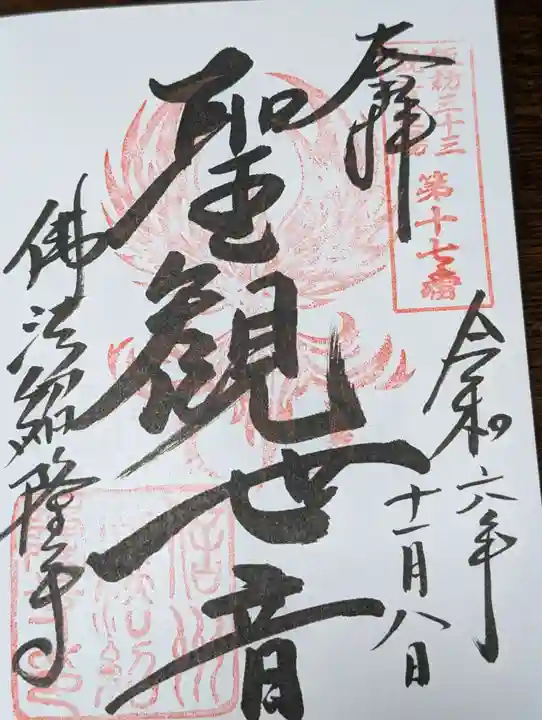 奉拝
第十七番
令和六年
十一月八日
聖観世音
佛法紹隆寺